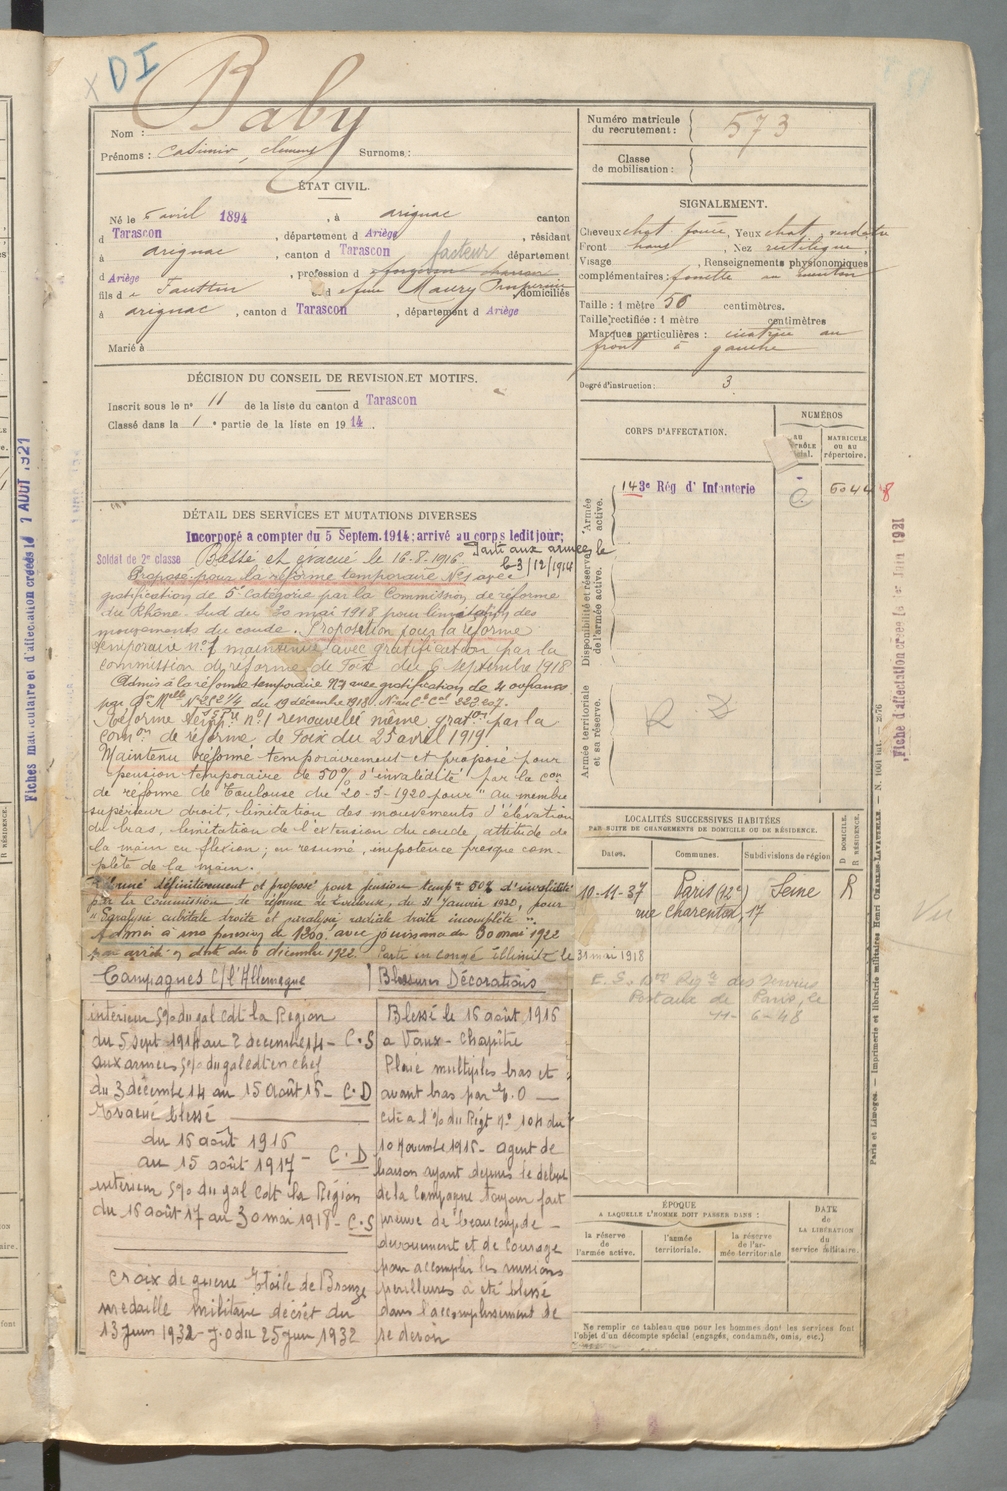 DI
Baby
Nom :
Prénoms : Casimir, Clément Surnoms :
ÉTAT CIVIL.
Né le 5 avril 1894, à arignac canton
d Tarascon, département d Ariège, résidant
à arignac, canton d Tarascon département
facteur
d Ariège, profession d
fils de Faustin et d e feue Maury domiciliés
à arignac, canton d Tarascon, département d Ariège
Marié à
DÉCISION DU CONSEIL DE REVISION ET MOTIFS.
Inscrit sous le nº 11 de la liste du canton d Tarascon
Classé dans la 1e partie de la liste en 1914.
DÉTAIL DES SERVICES ET MUTATIONS DIVERSES
Incorporé a compter du 5 Septem. 1914; arrivé au corps ledit jour;
Soldat de 2e classe Blessé et évacué le 16-8-1916. Parti aux armées le
le 3/12/1914
Proposé pour la réforme temporaire Nº1 avec
gratification de 5e Catégorie par la Commission de réforme
du Rhône. Sud du 30 mai 1918 pour limitation des
mouvements du coude. Proposition pour la réforme
temporaire nº1 maintenue avec gratification par la
commission de réforme de Foix du 6 septembre 1918
Admis à la réforme temporaire Nº1 avec gratification de
par du 19 décembre 1918.
Réforme nº1 renouvelée même graton par la
Comon de réforme de Foix du 25 avril 1919
Maintenu réformé temporairement et proposé pour
pension temporaire de 50% d'invalidité par la con
de réforme de Toulouse du 20-3-1920 pour "au membre
supérieur droit, limitation des mouvements d'élévation
du bras, limitation de l'extension du coude, attitude de
la main en flexion; en resumé, impotence presque com-
plète de la main.
Réformé définitivement et proposé pour pension tempre 50% d'invalidité
par la Commission de réforme de du 31 Janvier 1920, pour
"Paralysie cubitale droite et paralysie radiale droite incomplète".
Admis à une pension de 1200f avec jouissance du 30 mai 1922
par arrêté en date du 6 décembre 1922. Parti en congé illimité le 31 mai 1918
Campagnes c/ l'Allemagne
intérieur S/º du gal cdt la Region
du 5 sept 1914 au 2 decembre 14 - C.S
aux armées S/º du gal cdt en chef
du 3 décembre 14 au 15 août 16 - C.D
Evacué blessé
du 16 août 1916
au 15 août 1917 - C.D
intérieur S/º du gal cdt la Région
du 16 août 17 au 30 mai 1918 - C.S
Croix de guerre Etoile de Bronze
médaille militaire décret du
13 Juin 1932 - J.O du 25 Juin 1932
Blessures Décorations
Blessé le 16 août 1916
a Vaux-Chapitre
Plaie multiples bras et
avant bras par E.O
cité a l'º/ du Régt nº 104 du
10 novembre 1916 - agent de
liaison ayant depuis le début
de la campagne toujours fait
preuve de beaucoup de
devouement et de courage
pour accomplir les missions
perilleuses à été blessé
dans l'accomplissement de
se devoir
Numéro matricule du recrutement : 573
Classe de mobilisation :
SIGNALEMENT.
Cheveux chat foncé, Yeux chat verdatre
Front haut, Nez rectiligne
Visage, Renseignements physionomiques
complémentaires : fossette au menton
Taille : 1 mètre 56 centimètres.
Taille rectifiée : 1 mètre centimètres
Marques particulières : cicatrice au
front à gauche
Degré d'instruction : 3
CORPS D'AFFECTATION.
NUMÉROS
AU CONTRÔLE
MATRICULE OU AU RÉPERTOIRE.
Armée active.
143e Rég d' Infanterie
Disponibilité et réserve de l'armée active.
Armée territoriale et sa réserve.
LOCALITÉS SUCCESSIVES HABITÉES
PAR SUITE DE CHANGEMENTS DE DOMICILE OU DE RÉSIDENCE.
Dates. Communes. Subdivisions de région D DOMICILE. R RÉSIDENCE.
10-11-37 Paris (12e) Seine R
rue Charenton, 17
des Services
Postaux de Paris, le
11-6-48
ÉPOQUE
A LAQUELLE L'HOMME DOIT PASSER DANS :
la réserve de l'armée active.
l'armée territoriale.
la réserve de l'armée territoriale
DATE de LA LIBÉRATION du service militaire.
Ne remplir ce tableau que pour les hommes dont les services font
l'objet d'un décompte spécial (engagés, condamnés, omis, etc.)
Paris et Limoges. — Imprimerie et librairie militaires Henri CHARLES-LAVAUZELLE
Vu